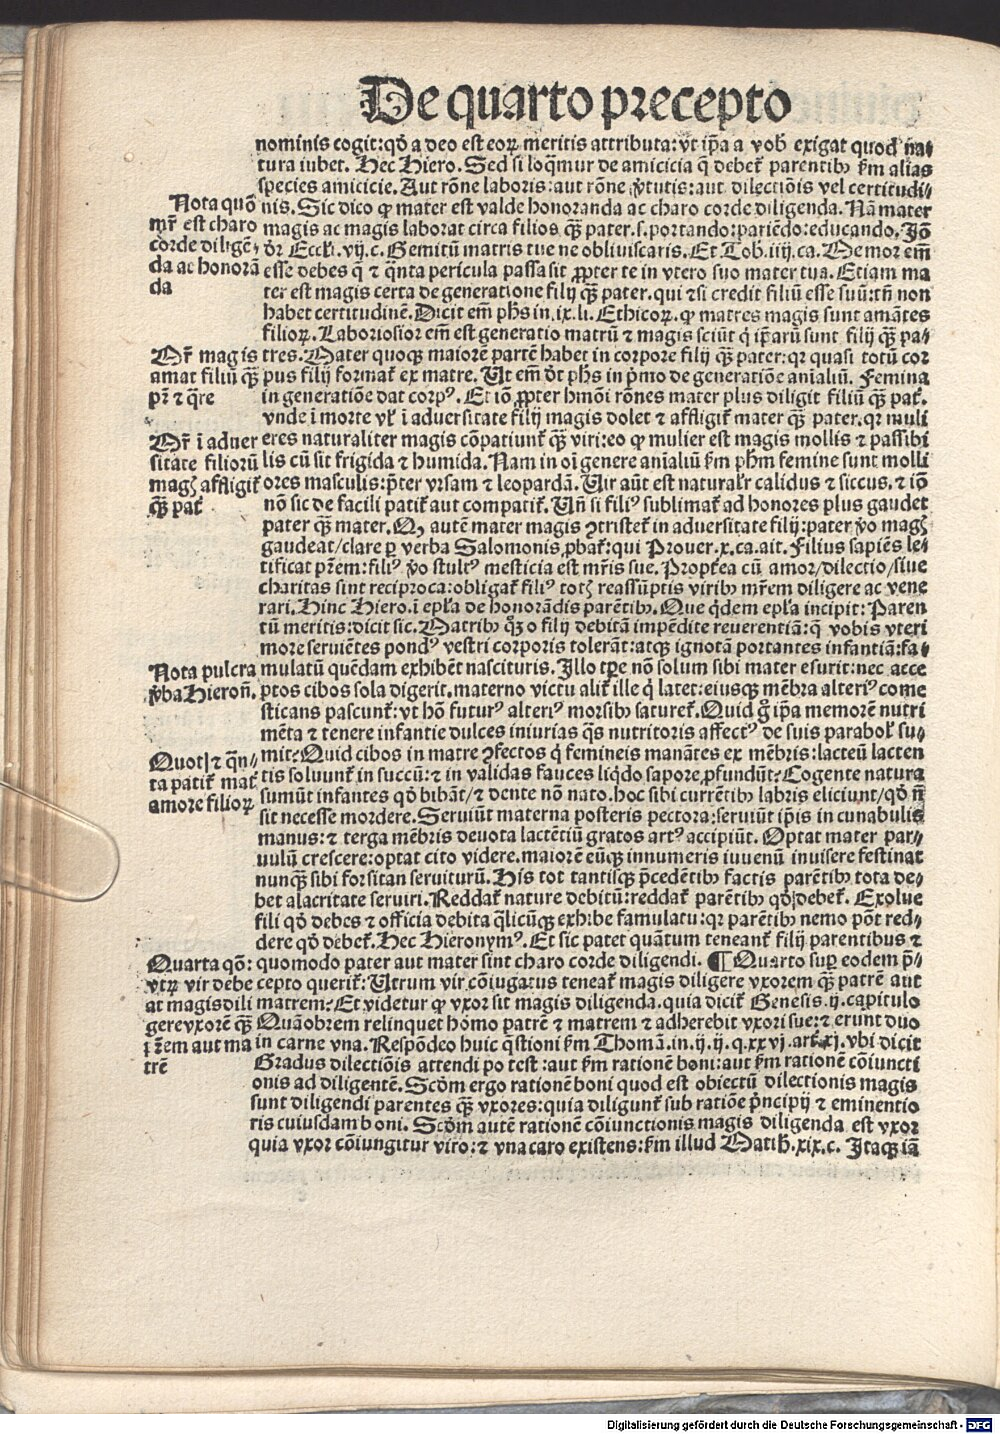 De quarto precepto
nominis cogit: qđ a deo est eoꝝ meritis attributa: vt ip̄a a vob̄ exigat quod na-
tura iubet. Hec Hiero. Sed si loq̄mur de amicicia q̄ debet̄ parentibꝫ fm alias
species amicicie. Aut rōne laboris: aut rōne v̓tutis: aut dilectiōis vel certitudi-
nis. Sic dico ꝙ mater est valde honoranda ac charo corde diligenda. Nā mater
magis ac magis laborat circa filios qꝫ pater. s. portando: pariēdo: educando. Jō
dr̄ Eccli. vij. c. Gemitū matris tue ne obliuiscaris. Et Tob. iiij. ca. Memor em̄
esse debes q̄ ⁊ q̄nta pericula passa sit ꝓpter te in vtero suo mater tua. Etiam ma
ter est magis certa de generatione filij qꝫ pater. qui ⁊si credit filiū esse suū: tn̄ non
habet certitudinē. Dicit em̄ phs in. ix. li. Ethicoꝝ. ꝙ matres magis sunt amātes
filioꝝ. Laboriosior em̄ est generatio matrū ⁊ magis sciūt ꝙ ip̄arū sunt filij qꝫ pa-
tres. Mater quoqꝫ maiorē partē habet in corpore filij qꝫ pater: qr quasi totū cor
pus filij format̄ ex matre. Ut em̄ dr̄ phs in pͥmo de generatiōe aīaliū. Femina
in generatiōe dat corpꝰ. Et iō ꝓpter hmōi rōnes mater plus diligit filiū qꝫ pat̄.
vnde ī morte vl̓ ī aduersitate filij magis dolet ⁊ affligit̄ mater qꝫ pater. qr muli
eres naturaliter magis cōpatiunt̄ qꝫ viri: eo ꝙ mulier est magis mollis ⁊ passibi
lis cū sit frigida ⁊ humida. Nam in oī genere aīaliū fm phm femine sunt molli
ores masculis: p̄ter vrsam ⁊ leopardā. Uir aūt est natural̓r calidus ⁊ siccus. ⁊ iō
nō sic de facili patit̄ aut compatit̄. Un̄ si filiꝰ sublimat̄ ad honores plus gaudet
pater qꝫ mater. Qꝫ autē mater magis ꝯtristet̄ in aduersitate filij: pater v̓o magꝭ
gaudeat/ clare ꝑ verba Salomonis ꝓbat̄: qui Prouer. x. ca. ait. Filius sapiēs le-
tificat pr̄em: filiꝰ v̓o stultꝰ mesticia est mr̄is sue. Propt̓ea cū amor/ dilectio/ siue
charitas sint reciproca: obligat̄ filiꝰ totꝭ reassūptis viribꝫ mr̄em diligere ac vene
rari. Hinc Hiero. ī epl̓a de honorādis parētibꝫ. Que qͥdem epl̓a incipit: Paren
tū meritis: dicit sic. Matribꝫ qꝫ o filij debitā impēdite reuerentiā: q̄ vobis vteri
more seruiētes pondꝰ vestri corporis tolerāt: atqꝫ ignotā portantes infantiā: fa-
mulatū quēdam exhibēt nascituris. Illo tꝑe nō solum sibi mater esurit: nec acce
ptos cibos sola digerit. materno victu alit̄ ille qͥ latet: eiusqꝫ mēbra alteriꝰ come
sticans pascunt̄: vt hō futurꝰ alteriꝰ morsibꝫ saturet̄. Quid gͦ ip̄a memorē nutri
mēta ⁊ tenere infantie dulces iniurias qͣs nutritoris affectꝰ de suis parabol̓ su-
mit? Quid cibos in matre ꝯfectos qͥ femineis manātes ex mēbris: lacteū lacten
tis soluunt̄ in succū: ⁊ in validas fauces liqͥdo sapore ꝓfundūt? Cogente natura
sumūt infantes qđ bibāt/ ⁊ dente nō nato. hoc sibi currētibꝫ labris eliciunt/ qđ n̄
sit necesse mordere. Seruiūt materna posteris pectora: seruiūt ip̄is in cunabulis
manus: ⁊ terga mēbris deuota lactētiū gratos artꝰ accipiūt. Optat mater par-
uulū crescere: optat cito videre. maiorē eūqꝫ innumeris iuuenū inuisere festinat
nunqꝫ sibi forsitan seruiturū. His tot tantisqꝫ p̄cedētibꝫ factis parētibꝫ tota de-
bet alacritate seruiri. Reddat̄ nature debitū: reddat̄ parētibꝫ qđ debet̄. Exolue
fili qđ debes ⁊ officia debita q̄licūqꝫ exhibe famulatu: qr parētibꝫ nemo pōt red-
dere qđ debet̄. Hec Hieronymꝰ. Et sic patet quātum teneant̄ filij parentibus ⁊
quomodo pater aut mater sint charo corde diligendi. ¶ Quarto suꝑ eodem p̄-
cepto querit̄: Utrum vir cōiugatus teneat̄ magis diligere vxorem qꝫ patrē aut
matrem? Et videtur ꝙ vxor sit magis diligenda. quia dicit̄ Genesis. ij. capitulo
Quāobrem relinquet homo patrē ⁊ matrem ⁊ adherebit vxori sue: ⁊ erunt duo
in carne vna. Respōdeo huic q̄stioni fm Thomā. in. ij. ij. q. xxvj. art̄. xj. vbi dicit
Gradus dilectiōis attendi potest: aut fm rationē boni: aut fm rationē cōiuncti
onis ad diligentē. Scd̓m ergo rationē boni quod est obiectū dilectionis magis
sunt diligendi parentes qꝫ vxores: quia diligunt̄ sub ratiōe pͥncipij ⁊ eminentio
ris cuiusdam boni. Scd̓m autē rationē cōiunctionis magis diligenda est vxor
quia vxor cōiungitur viro: ⁊ vna caro existens: fm illud Matth. xix. c. Itaqꝫ iā
Nota quō
mr̄ est charo
corde diligē-
da ac honorā
da
Mr̄ magis
amat filiū qꝫ
pr̄ ⁊ qͣre
Mr̄ ī aduer
sitate filiorū
magꝭ affligit̄
qꝫ pat̄
Nota pulcra
v̓ba Hieron̄.
Quot ⁊ q̄n-
ta patit̄ mat̄
amore filioꝝ
Quarta qō:
vtꝝ vir debe
at magis dili
gere vxorē qꝫ
pr̄em aut ma
trē
Digitalisierung gefördert durch die Deutsche Forschungsgemeinschaft - DFG